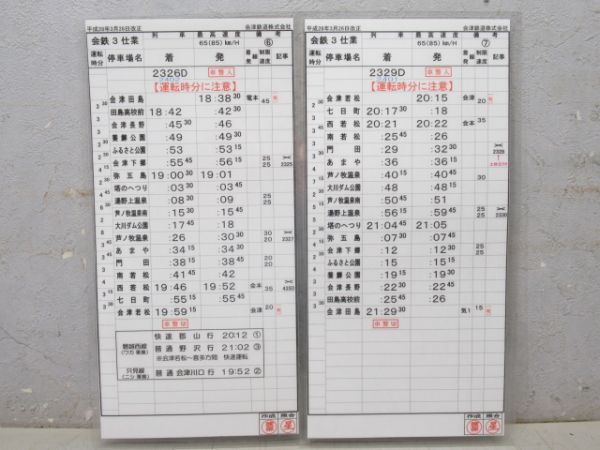 平成28年3月26日改正 会津鉄道株式会社
会鉄 3 仕業 列車 最高速度 備考
65(85) km/H ⑥
運転時分 停車場名 着 発 着発線 制限速度 記事
2326D 車警入
【運転時分に注意】
会津田島 18:38 30 電本 45
田島高校前 18:42 :42
会津長野 :45 45 :46
養鱒公園 :49 :49 30
ふるさと公園 :53
会津下郷 :55 45 :56 15 25 25 2325
弥五島 19:00 30 19:01
塔のへつり :03 :03 45
湯野上温泉 :08 :09 25 25
芦ノ牧温泉南 :15 :15 45
大川ダム公園 :17 45 :18
芦ノ牧温泉 :26 :30 30 20 20 2327
あまや :34 :34
門田 :38 :38 15 20
南若松 :41 45 :42
西若松 19:46 19:52 会本 35
七日町 :55 :55 15
会津若松 19:59 15 会津 20
車警切
磐越西線 快速 郡山行 20:12 ①
普通 野沢行 21:02 ③
※会津若松~喜多方間 快速運転
只見線 普通 会津川口行 19:52 ②
作成 照合
平成28年3月26日改正 会津鉄道株式会社
会鉄 3 仕業 列車 最高速度 備考
65(85) km/H ⑦
運転時分 停車場名 着 発 着発線 制限速度 記事
2329D 車警入
【運転時分に注意】
会津若松 20:15 会津 20
七日町 20:17 30 :18
西若松 20:21 20:22 会本 35
南若松 :25 45 :26
門田 :29 :32 30 2328
あまや :36 :36 15
芦ノ牧温泉 :40 :40 45 30
大川ダム公園 :48 :48 15
芦ノ牧温泉南 :50 45 :51
湯野上温泉 :56 45 :59 25 25 2330
塔のへつり 21:04 45 21:05
弥五島 :07 :07 45
会津下郷 :12 :12 30 25 25
ふるさと公園 :15
養鱒公園 :19 :19 30
会津長野 :22 :22 45
田島高校前 :25 45 :26
会津田島 21:29 30 気1 15
車警切
作成 照合